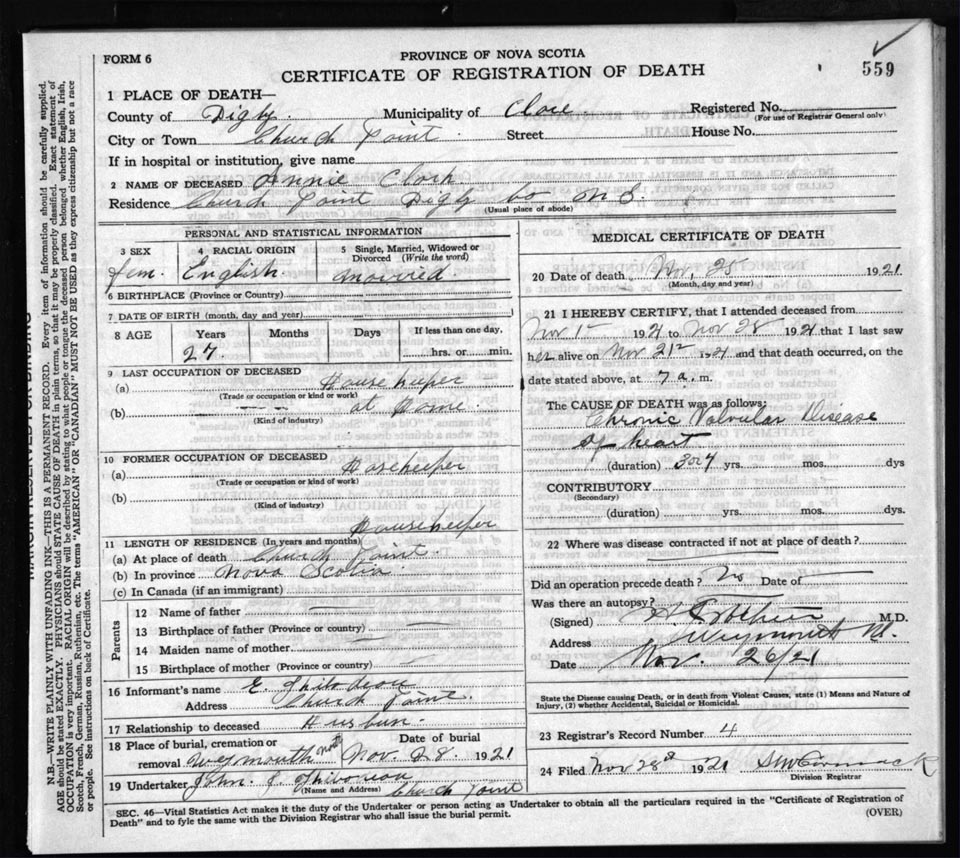 FORM 6
PROVINCE OF NOVA SCOTIA
CERTIFICATE OF REGISTRATION OF DEATH
559
1 PLACE OF DEATH—
County of Digby. Municipality of Clare Registered No.
(For use of Registrar General only)
City or Town Church Point. Street House No.
If in hospital or institution, give name
2 NAME OF DECEASED Annie Clark
Residence Church Point Digby Co N.S.
(Usual place of abode)
PERSONAL AND STATISTICAL INFORMATION
3 SEX 4 RACIAL ORIGIN 5 Single, Married, Widowed or Divorced (Write the word)
fem. English married.
6 BIRTHPLACE (Province or Country)
7 DATE OF BIRTH (month, day and year)
8 AGE Years Months Days If less than one day,
27 hrs. or min.
9 LAST OCCUPATION OF DECEASED
(a) Housekeeper
(Trade or occupation or kind of work)
(b) at Home
(Kind of industry)
10 FORMER OCCUPATION OF DECEASED
(a) Housekeeper
(Trade or occupation or kind of work)
(b)
(Kind of industry)
Housekeeper
11 LENGTH OF RESIDENCE (In years and months)
(a) At place of death Church Point.
(b) In province Nova Scotia
(c) In Canada (if an immigrant)
Parents
12 Name of father
13 Birthplace of father (Province or country)
14 Maiden name of mother
15 Birthplace of mother (Province or country)
16 Informant's name E.
Address Church Point.
17 Relationship to deceased
18 Place of burial, cremation or Date of burial
removal Weymouth Nov. 28. 1921
19 Undertaker John
(Name and Address) Church Point
MEDICAL CERTIFICATE OF DEATH
20 Date of death Nov, 25 1921
(Month, day and year)
21 I HEREBY CERTIFY, that I attended deceased from
Nov 1st 1921 to Nov 1921 that I last saw
her alive on Nov 21st 1921 and that death occurred, on the
date stated above, at 7 a. m.
The CAUSE OF DEATH was as follows:
Chronic Valvular Disease
of heart
(duration) 3 or 4 yrs. mos. dys
CONTRIBUTORY
(Secondary)
(duration) yrs. mos. dys.
22 Where was disease contracted if not at place of death?
Did an operation precede death? No Date of
Was there an autopsy?
(Signed) M.D.
Address Weymouth
Date Nov. 26/21
State the Disease causing Death, or in death from Violent Causes, state (1) Means and Nature of
Injury, (2) whether Accidental, Suicidal or Homicidal.
23 Registrar's Record Number 4
24 Filed Nov 28th 1921 McCormack
Division Registrar
SEC. 46—Vital Statistics Act makes it the duty of the Undertaker or person acting as Undertaker to obtain all the particulars required in the "Certificate of Registration of
Death" and to fyle the same with the Division Registrar who shall issue the burial permit.
(OVER)
MARGIN RESERVED FOR BINDING
N.B.—WRITE PLAINLY WITH UNFADING INK—THIS IS A PERMANENT RECORD. Every item of information should be carefully supplied.
AGE should be stated EXACTLY. PHYSICIANS should STATE CAUSE OF DEATH in plain terms, so that it may be properly classified. Exact statement of
OCCUPATION is very important. RACIAL ORIGIN will be described by stating to what people or tongue the deceased person belonged whether English, Irish,
Scotch, French, German, Russian, Ruthenian, etc. The terms "AMERICAN" OR "CANADIAN" MUST NOT BE USED as they express citizenship but not a race
or people. See instructions on back of Certificate.